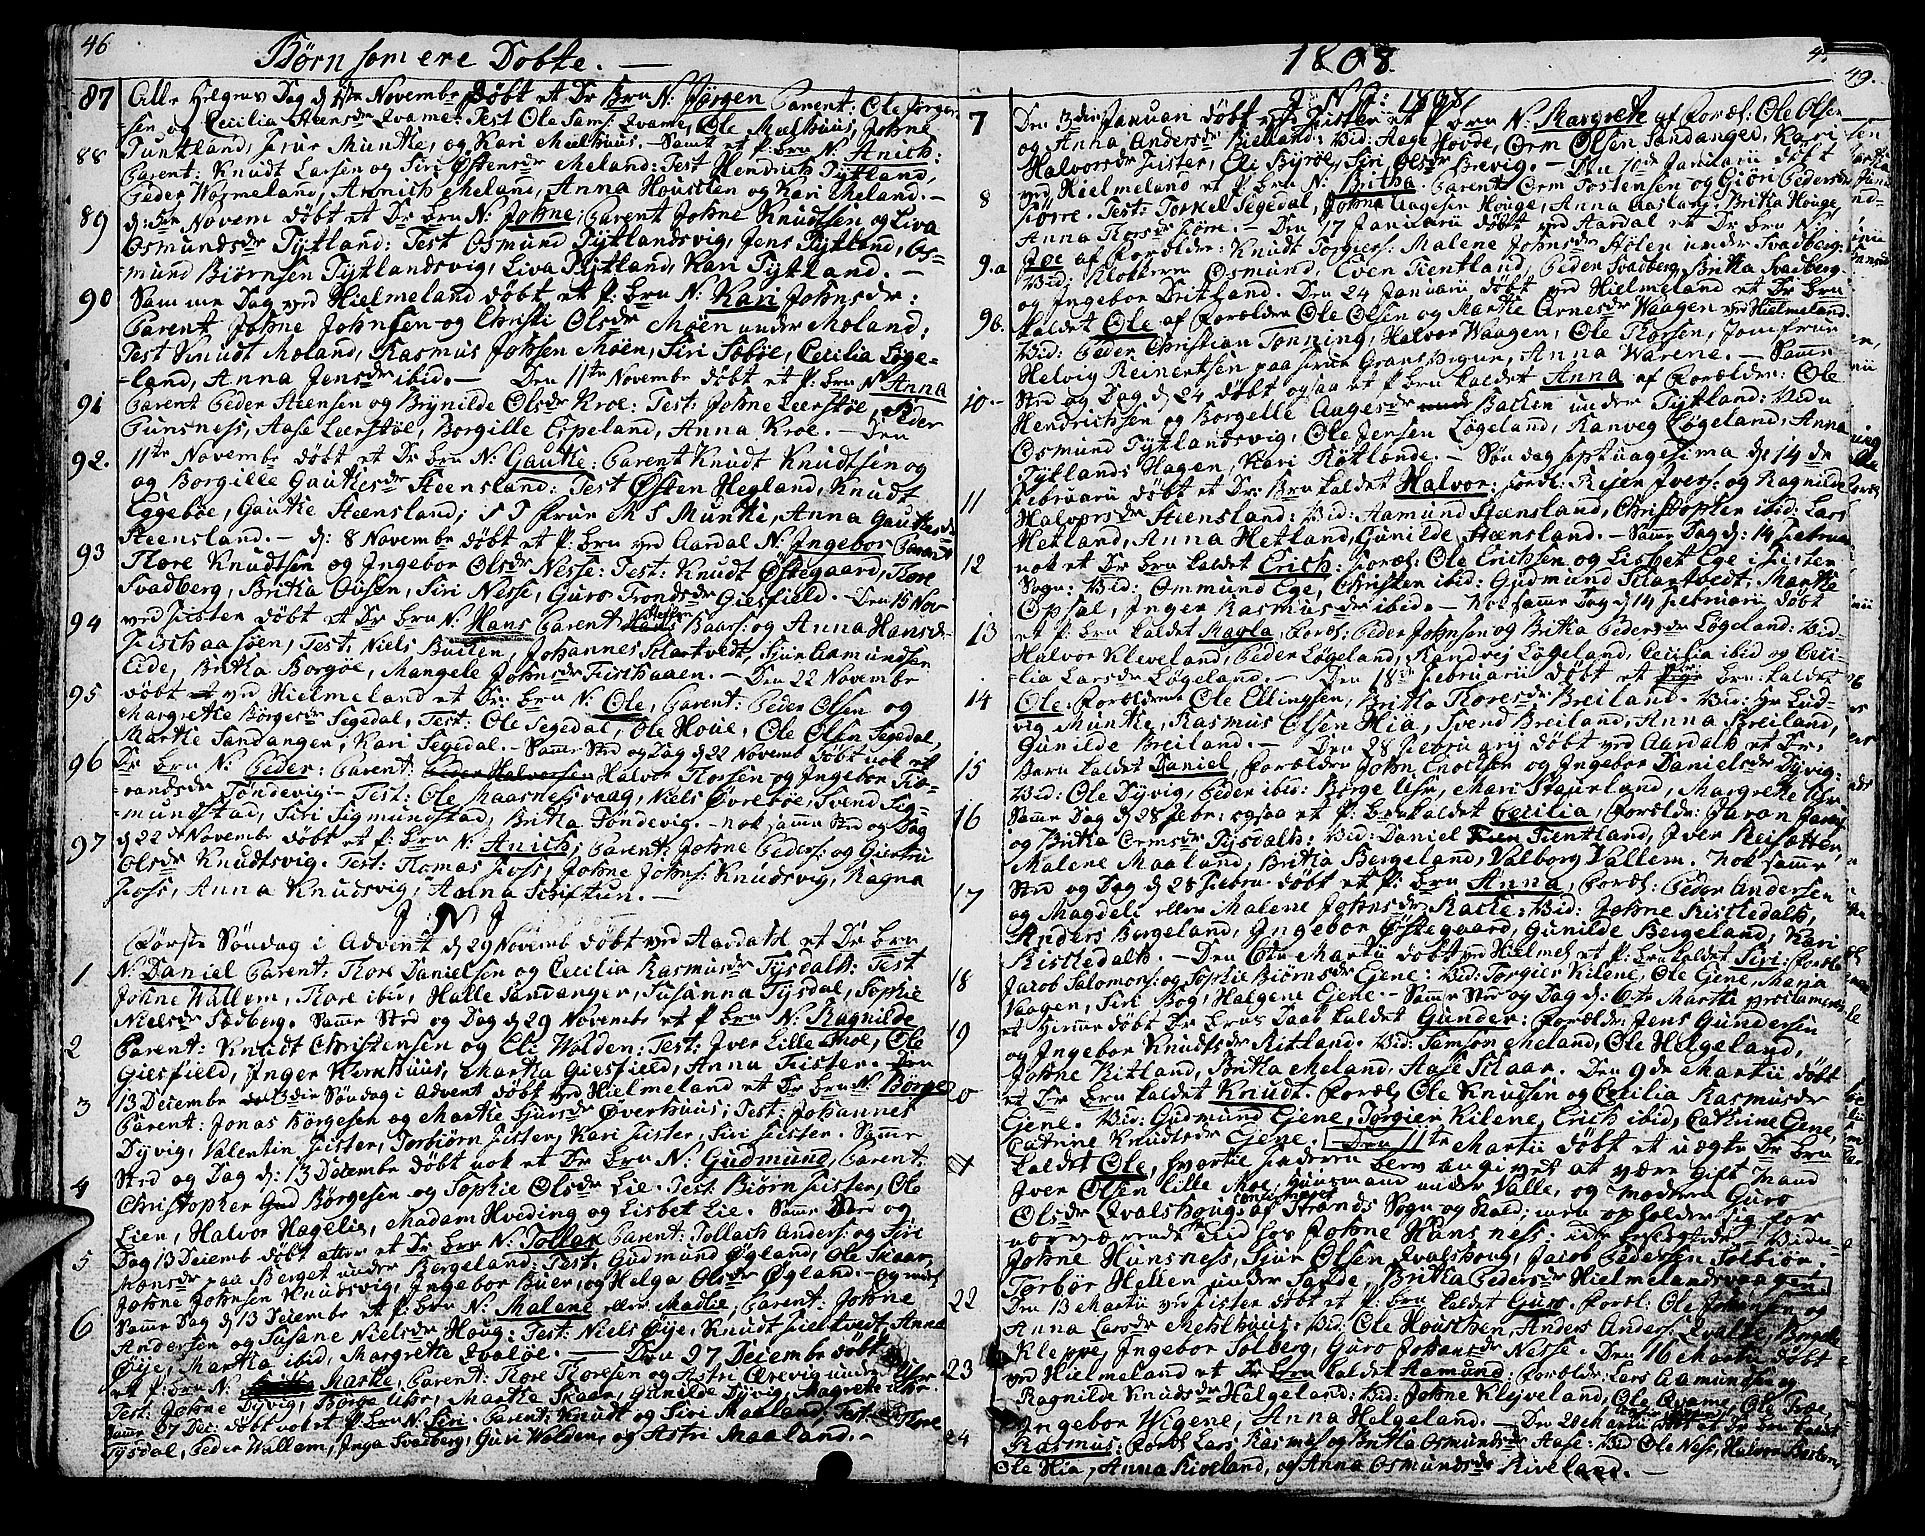 46
Børn som ere Döbte. —
87 Alle Helgens Dag d 1ste Novembr döbt et Dr Brn N: Jörgen Parent: Ole Jörgen-
sen og Cecilia Steensdr Qvame: Test Ole Sams: Qvame, Ole Meelhuus, Johne
Funtland, frue Munthe, og Kari Meelhuus. – Samt et P: brn N: Anich:
88 Parent: Knudt Larsen og Siri Östensdr Meland: Test Hendrich Tytland,
Peder Wormeland, Annich Meland, Anna Housteen og Kari Meland. –
89 d: 5te Novem döbt et Dr brn N: Johne, Parent Johne Knudsen og Liva
Osmundsdr Tytland: Test Osmund Tytlandsvig, Jens Tytland, Os-
mund Biörnsen Tytlandsvig, Liva Tytland, Kari Tytland. –
90 Samme Dag ved Hielmeland döbt et P: brn N: Kari Johnsdr:
Parent Johne Johnsen og Christi Olsdr Möen under Moland:
Test Knudt Moland, Rasmus Johsen Möen, Siri Söböe, Cecilia Löge-
land, Anna Jensdr ibid. – Den 11te Novembr döbt et P: brn N Anna
91 Parent Peder Steensen og Brynilde Olsdr Kroe: Test: Johne Leerstöe, Peder
Punsness, Aase Leerstöe, Borgille Copeland, Anna Kroe. – Den
92. 11te Novembr döbt et Dr brn N: Gautke: Parent Knudt Knudtsen og
og Borgille Gautkesdr Steensland: Test Östen Hegland, Knudt
Eggeböe, Gautke Steensland, S T frue M S Munthe, Anna Gautkesdr
Steensland. – d: 8 Novembr döbt et P: brn ved Aardal N: Ingebor Parent
93 Thore Knudtsen og Ingebor Olsdr Nesse: Test: Knudt Östegaard, Thore
Svadberg, Britha Olisen, Siri Nesse, Guro Trondsdr Giesfield. – Den 15 Nov
94 ved fisten döbt et Dr brn N: Hans Parent Baars: og Anna Hansdr
Fischaasen, Test: Niels Buiten, Johannes Startvedt, Siur Aamundsen
Eide, Britha Borgöe, Mangele Johnsdr Fischaaen. – Den 22 Novembr
95 döbt ved Hielmeland et Dr: brn N: Ole, Parent: Peder Olsen og
Margrethe Börgesdr Segedal, Test: Ole Segedal, Ole Houe, Ole Olsen Segedal,
Marthe Sandanger, Kari Segedal. – Samme Sted og Dag d 22 Novemb döbt nok et
96 Dr brn N: Peder: Parent: Peder Halvorsen Halvor Thorsen og Ingebor Tro-
vandsdr Töndevig – Test: Ole Maasnessvaag, Niels Övreböe, Svend Sig-
mundstad, Siri Sigmundstad, Britha Töndevig. – nok samme Sted og Dag
97 d 22de Novembr döbt et P: brn N: Anich; Parent: Johne Peders: og Giertru
Olsdr Knudtsvig. Test: Thomas Foss, Johne Johns: Knudsvig, Ragna
Foss, Anna Knudsvig, Anna Schiftun. –
J: N: J
Förste Söndag i Advent d 29 Novemb döbt ved Aardahl et Dr brn
1 N: Daniel Parent: Thore Danielsen og Cecilia Rasmusdr Tysdalh: Test
Johne Wallem, Thore ibid, Halle Sandanger, Susanna Tysdal, Sophie
Nielsdr Sædberg. Samme Sted og Dag d 29 Novembr et P: brn N: Ragnilde
2 Parent: Knudt Christensen og Eli Wolden: Test: Iver Lille Moe, Ole
Giesfield, Inger Kirkhuus, Martha Giesfield, Anna Fister. Den
13 Decembr 3die Söndag i Advent döbt ved Hielmeland et Dr brn N: Borge
3 Parent: Jonas Börgesen og Marthe Siursdr Överhuus, Test: Johannes
Dyvig, Valentin Fister, Torbiörn Fister, Kari Fister, Siri Fister. Samme
Sted og Dag d: 13 Decembr döbt nok et Dr brn N: Gudmund, Parent:
4 Christopher Gud Börgesen og Sophie Olsdr Lie. Test: Biörn Fister, Ole
Lien, Halvor Hagelie, Madam Hveding og Lisbet Lie. Samme Sted og
Dag 13 Decemb döbt atter et Dr brn N: Tollak Parent: Tollach Anders: og Siri
5 Hansdr paa Berget under Bergeland: Test: Gudmund Ögland, Ole Skaar,
Johne Johnsen Knudsvig, Ingebor Buer, og Helga Olsdr Ögland. – og nok
Samme Dag d 13 Decembr et P: brn N: Malene eller Madlie, Parent: Johne
6 Andersen og Susane Nielsdr Houg: Test: Niels Öije, Knudt Fieltvedt, Anna
Öije, Martha ibid, Margrethe Qvalöe. – Den 27 Decembr döbt
et P: brn N: Marthe, Parent: Thore Thoresen og Astri Arevig under Uhr.
Test: Johne Dyvig, Börge Uhr, Marthe Skaar, Gunilde Dyvig, Magrethe Uhr.
Samme 27 Dec: döbt nok et P: brn N: Siri. Parent: Knudt og Siri Maaland, Test: Thore
Tysdal, Peder Wallem, Inga Svadberg, Guri Wolden, og Astri Maaland. –
1808.
49.
J: N: J: 1808
7 Den 3die Januari döbt ved Fister et P: brn N: Margreth af Foræl: Ole Olsen
og Anna Andersdr Kieland: Vid: Aage Hovde, Orm Olsen Sandanger, Kari
Halvorsdr Fister, Eli Byrde, Siri Olsdr Brevig. – Den 10de Januarii döbt
8 ved Hielmeland et P: brn N: Britha. Parent Orm Tostensen og Giöri Pedersdr
Fiöre. Test: Torkel Segedal, Johna Aagesen Houge, Anna Aaslang, Britha Houge,
Anna Thorsdr Fiöre. – Den 17 Januarii döbt ved Aardal et Dr brn N:
9.a Joe af Forælder: Knudt Torgiers: Malene Johnsdr Hölen under Svadberg.
Vid: Klokkeren Osmund, Even Tientland, Peder Svadberg, Britha Svadberg
og Ingebor Tritland. Den 24 Januarii döbt ved Hielmeland et Dr brn
9b. kaldet Ole af Forældre Ole Olsen og Marthe Arnesdr Waagen ved Hielmeland.
Vid: Peder Christian Tönning, Halvor Waagen, Ole Thorsen, Jomfrue
Helvig Reinertsen paa frue Grans Vegne, Anna Warene. – Samme
10. – Sted og Dag d 24 döbt ogsaa et P: brn kaldet Anna af Forælder: Ole
Hendrichsen og Borgelle Augesdr Backen under Tytland: Vidn
Osmund Tytlandsvig, Ole Jensen Lögeland, Ranveg Lögeland, Anna
Tytlands Hagen, Kari Rötlende. – Söndag Septuagesima d 14 de
11 Februarii döbt et Dr: Brn kaldet Halvor: Foræl: Reier Ivers: og Ragnilde
Halvorsdr Steensland: Vid: Aamund Steensland, Christopher ibid: Lars
Hetland, Anna Hetland, Gunilde Steensland. – Samme Dag d: 14 Februar
12 nok et Dr brn kaldet Erich: Foræl: Ole Erichsen og Lisbet Ege i Fister
Sogn: Vid: Ommund Ege, Christen ibid: Gudmund Startvedt, Marthe
Opsal, Inger Rasmusdr ibid. – Nok samme Dag d 14 Februarii döbt
13 et P: brn kaldet Magla, Foræl: Peder Johnsen og Britha Pedersdr Lögeland: Vid-
Halvor Kleveland, Peder Lögeland, Randvej Lögeland, Cecilia ibid og Ceci-
lia Larsdr Lögeland. – Den 18de Februarii döbt et brn: kaldet
14 Ole, Forældrene Ole Ellingsen, Britha Thoresdr Breiland. Vid: Hr Lud-
vig Munthe, Rasmus Olsen Hia, Svend Breiland, Anna Breiland,
Gunilde Breiland. – Den 28 Februarij döbt ved Aardalh et Dr,
15 Barn kaldet Daniel, Forælder John Enochsen og Ingebor Danielsdr Dyvig:
Vid: Ole Dyvig, Peder ibid: Börge Uhr, Mari Staurland, Margrethe Uhr
16 Samme Dag d 28 Febr: ogsaa et P: brn kaldet Cecilia, Forælde: Faron Farons
og Britha Ormsdr Tysdalh: Vid: Daniel Tientland, Iver Reisætter,
Malene Maaland, Britha Bergeland, Valborg Vallem. Nok samme
17 Sted og Dag d 28 Februa: döbt et P: brn Anna, Foræl: Peder Andersen
og Magdeli eller Malene Johnsdr Bakke: Vid: Johne Kistledalh,
Anders Borgeland, Ingebor Östegaard, Gunilde Bergeland, Kari
Kistledalh. – Den 6te Martii döbt ved Hielmeh et P: brn kaldet Siri: Foræl:
18 Jacob Salomons: og Sophie Biörnsdr Gjene: Vid: Torgier Kilene, Ole Gjene, Maria
Vaagen, Siri Bog, Halgene Ejene. – Samme Sted og Dag d: 6te Martii proclamer-
19 et Hiemmedöbt Dr brns Daab kaldet Gunder: Foræld: Jens Gundersen
og Ingebor Knudtsdr Ritland. Vid: Samson Meland, Ole Helgeland,
Johne Ritland, Britha Meland, Aase Skaar. Den 9de Martii döbt
20 et Dr brn kaldet Knudt. Foræl: Ole Knudsen og Cecilia Rasmusdr
Gjene. Vid: Gudmund Gjene, Torgier Kilene, Erich ibid, Cathrine Gjene,
Catrine Knudtsdr Gjene. Den 11te Martii döbt et uægte Dr brn
kaldet Ole, hvortil faderen blev angivet at være Gift Mand
Iver Olsen lille Moe, Huusmand under Valle, og moderen Guro
Olsdr Qvalshougs af Strands Sogn og Kald; men opholder sig for
nærværende Tid hos Johne Hans Ness: Vidn:
Johne Hunsness, Siur Olsen Qvalshoug, Jacob Pedersen Solbiör.
Torbör Hetlen under Sande, Britha Pedersdr Hielmelandsvaagen.
22 Den 13 Martii ved Fister döbt et P: brn kaldet Guro. Foræl: Ole Johansen og
Anna Larsdr Mehlhuus: Vid: Ole Housken, Anders Anders: Qvalke, Borgelle
Kleppe, Ingebor Solberg, Guro Johansdr Nesse. Den 16 Martii döbt
23 ved Hielmeland et Dr brn kaldet Aamund: Forælde: Lars Aamundsen og
Ragnilde Knudsdr Helgeland: Vid: Johne Klejveland, Ole Qvame, Ole Troe,
Ingebor Wigene, Anna Helgeland. – Den 20 Martii döbt et Dr brn kaldet
24 Rasmus: Foræl: Lars Rasmus: og Britha Osmundsdr Aase: Vid Ole Ness, Halvor
Ole Hia, Anna Riveland, og Anna Osmundsdr Riveland. –